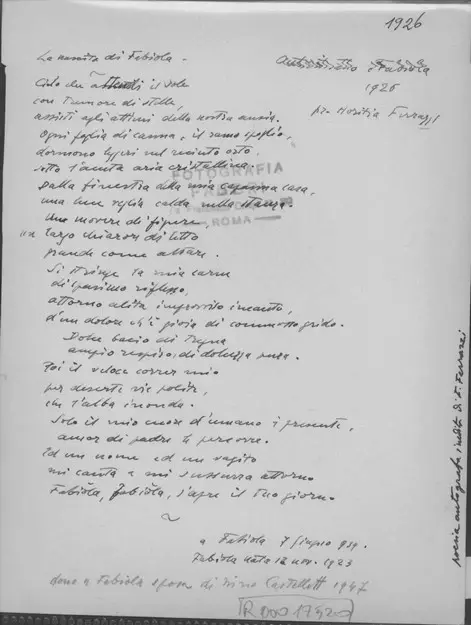 1926
La nascita di Fabiola -
Fabiola
1926
Cielo che attendi il sole
con tremore di stelle,
assisti agli attimi della nostra ansia.
Ogni foglia di canna, il ramo spoglio,
dormono leggeri nel recinto orto,
sotto l'amata aria cristallina.
FOTOGRAFIA
ROMA
Dalla finestra della mia casa,
una luce veglia calda nella stanza.
Un movere di figure,
un largo chiarore di letto
grande come altare.
Si stringe la mia carne
di spasimo riflesso,
attorno alita improvviso incanto,
d'un dolore ch'è gioia di commosso grido.
Dolce bacio di tregua
ampio respiro di dolcezza pura.
Poi il veloce correr mio
per deserte vie
che l'alba inonda.
Solo il mio cuore d'umano è presente,
amor di padre le percorre.
Ed un nome ed un vagito
mi canta e mi sussurra attorno
Fabiola, Fabiola, s'apre il tuo giorno
~
a Fabiola 7 Giugno 939.
Fabiola nata 12 nov. 1923
dono a Fabiola sposa di Nino 1947
poesia autografa inedita di F. Ferrazzi